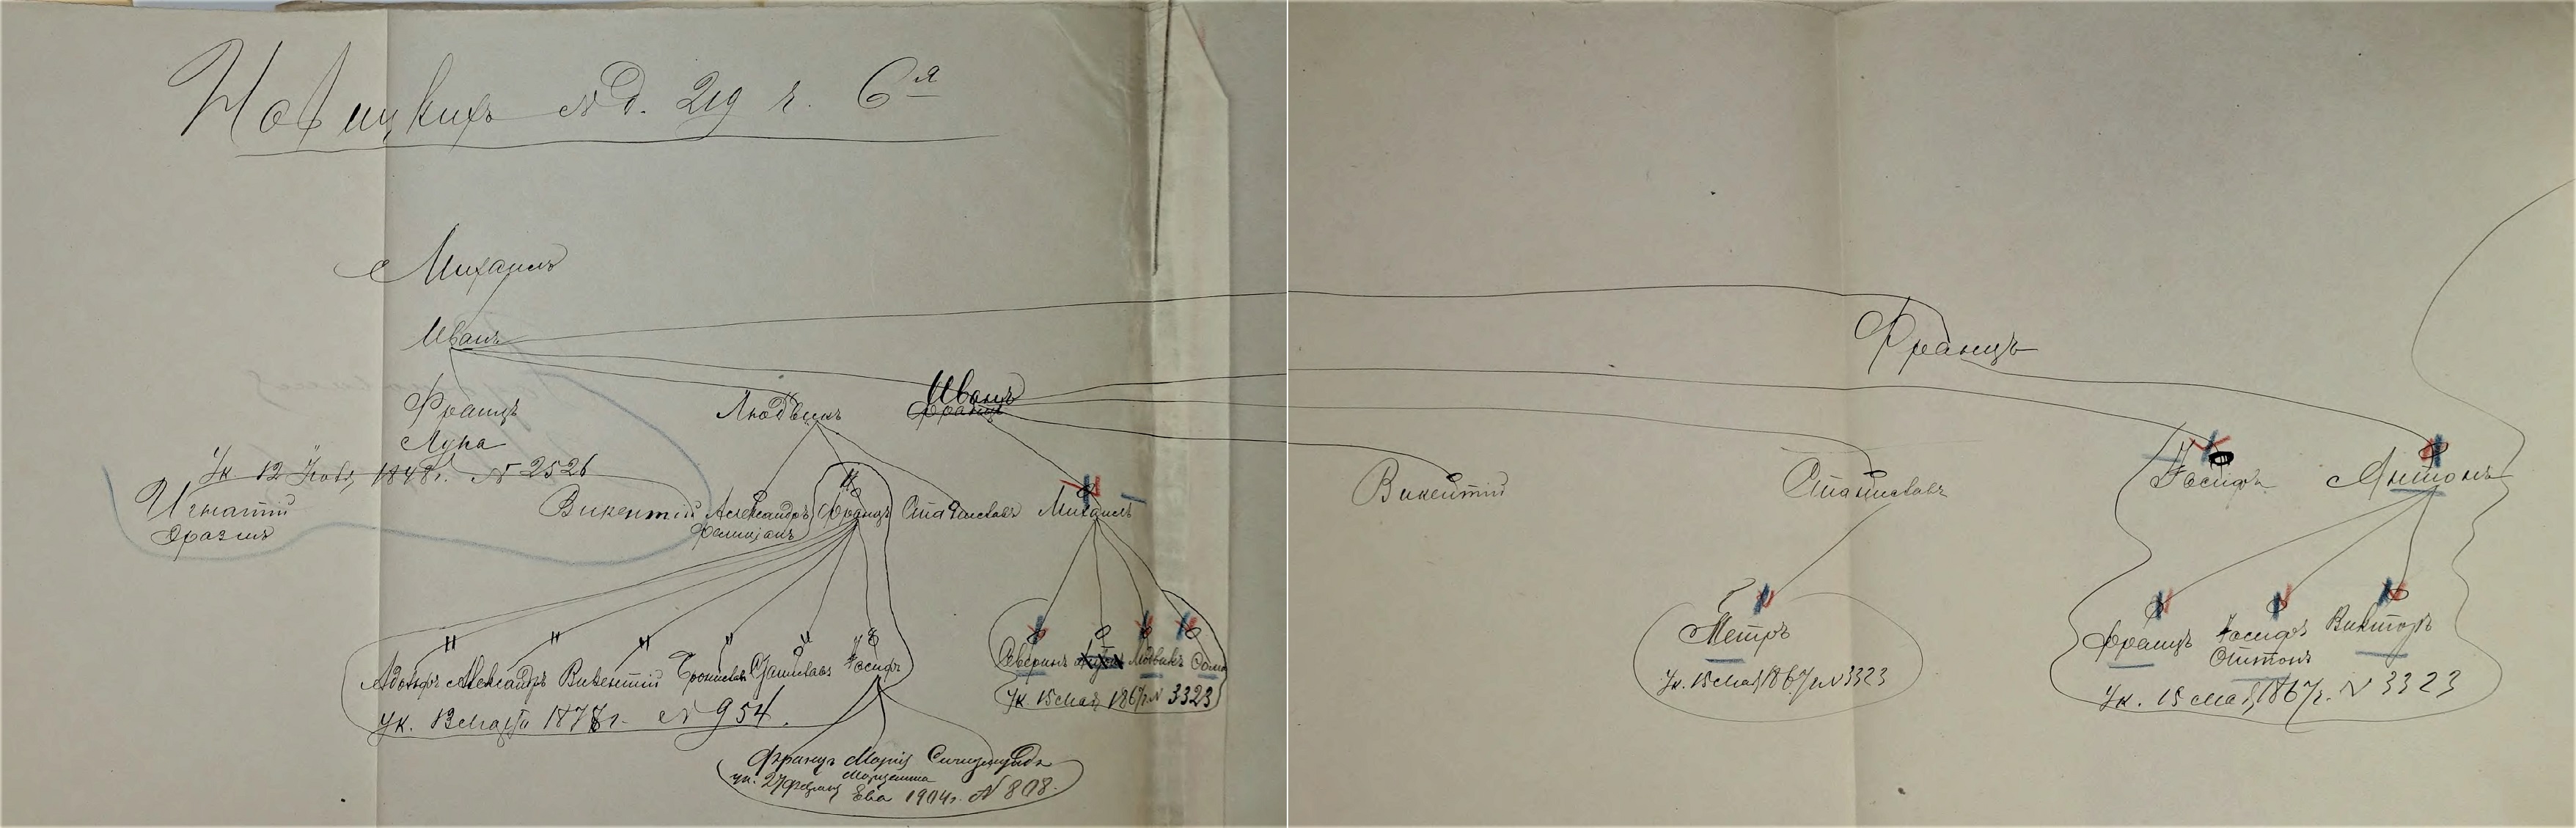 Новицкихъ № д. 219 г. 6я
Михаилъ
Иванъ
Францъ
Францъ
Лука
Людвикъ
Иванъ
Францъ
Ук. 12 Нояб. 1848г. № 2526
Игнатій
Викентій
Александръ
Францъ
Станиславъ
Михаилъ
Викентій
Станиславъ
Іосифъ
Антонъ
Адольфъ Александръ Викентій Брониславъ Станиславъ Іосифъ
Северинъ
Людвикъ
Петръ
Францъ
Іосифъ
Антонъ
Викторъ
Ук. 13 Марта 1878г. № 954.
Ук. 15 Мая 1867г. № 3323
Ук. 15 Мая 1867г. № 3323
Ук. 15 Мая 1867г. № 3323
Францъ Марія Сигизмундъ
ук. 27 Февраля
Ева 1904г. № 808.